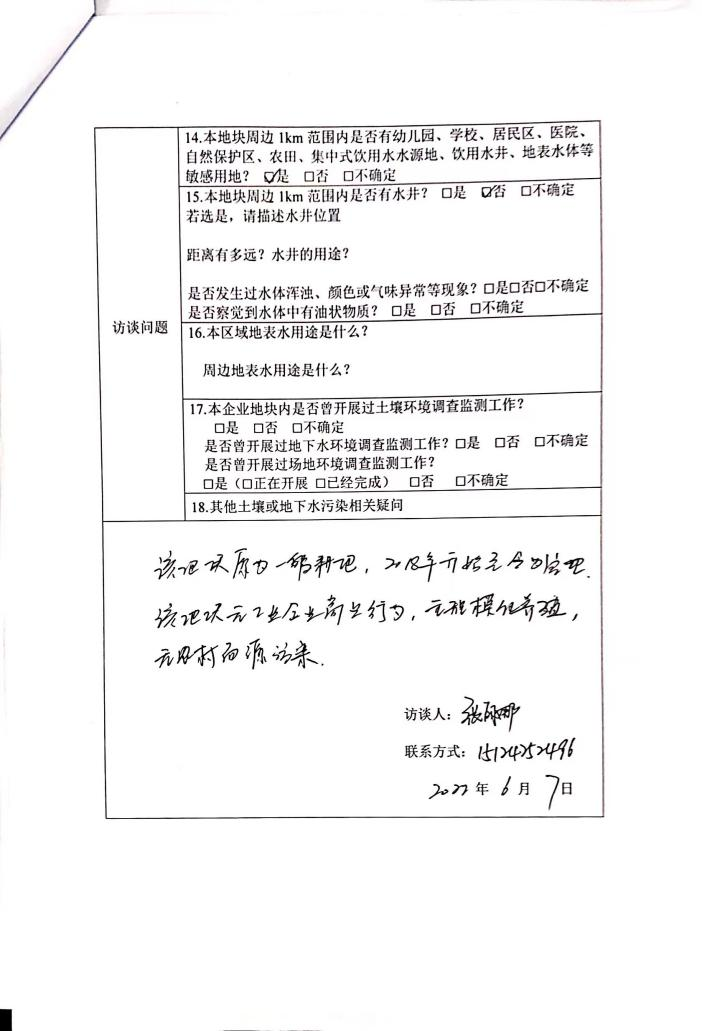 14.本地块周边 1km 范围内是否有幼儿园、学校、居民区、医院、
自然保护区、农田、集中式饮用水水源地、饮用水井、地表水体等
敏感用地？ ☑是 □否 □不确定
15.本地块周边 1km 范围内是否有水井？ □是 ☑否 □不确定
若选是，请描述水井位置
距离有多远？水井的用途？
是否发生过水体浑浊、颜色或气味异常等现象？□是□否□不确定
是否察觉到水体中有油状物质？ □是 □否 □不确定
访谈问题
16.本区域地表水用途是什么？
周边地表水用途是什么？
17.本企业地块内是否曾开展过土壤环境调查监测工作？
□是 □否 □不确定
是否曾开展过地下水环境调查监测工作？□是 □否 □不确定
是否曾开展过场地环境调查监测工作？
□是（□正在开展 □已经完成） □否 □不确定
18.其他土壤或地下水污染相关疑问
该地块原为一般耕地，年开始至今为
该地块无工业企业商业行为，无规模化养殖，
无农村面源污染.
访谈人：张
联系方式：15124252496
2022 年 6 月 7 日